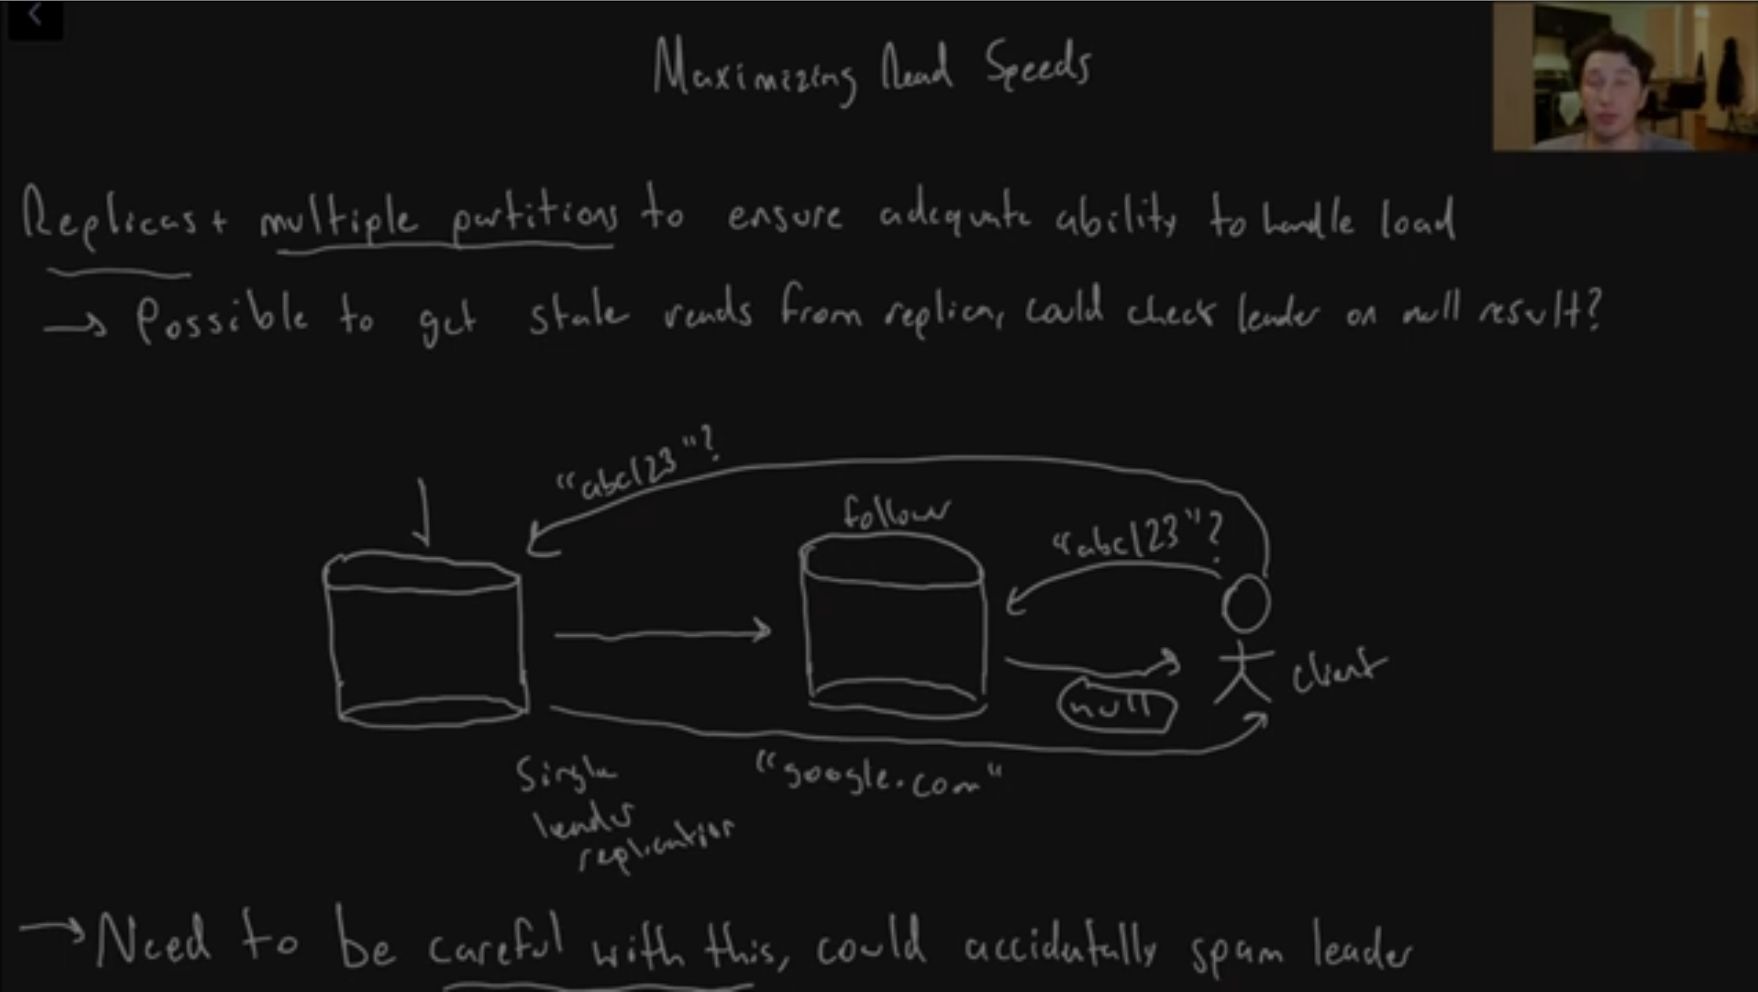 Maximizing Read Speeds
Replicas + multiple partitions to ensure adequate ability to handle load
→ Possible to get stale reads from replica, could check leader on null result?
"abc123"?
follower
"abc123"?
client
null
"google.com"
Single
leader
replication
→ Need to be careful with this, could accidutally spam leader